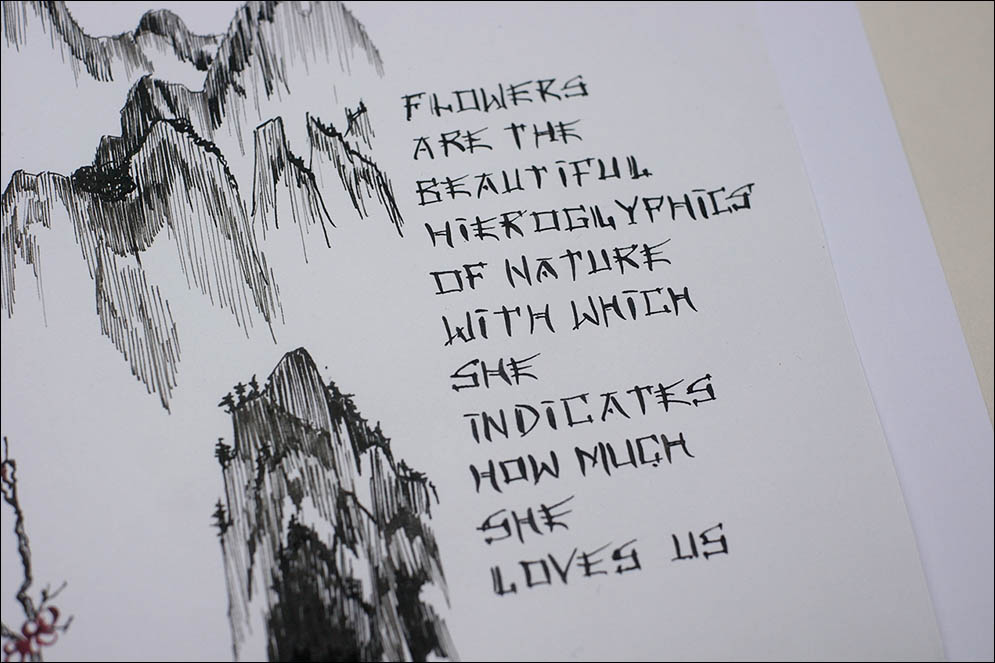 FLOWERS
ARE THE
BEAUTIFUL
HIEROGLYPHICS
OF NATURE
WITH WHICH
SHE
INDICATES
HOW MUCH
SHE
LOVES US